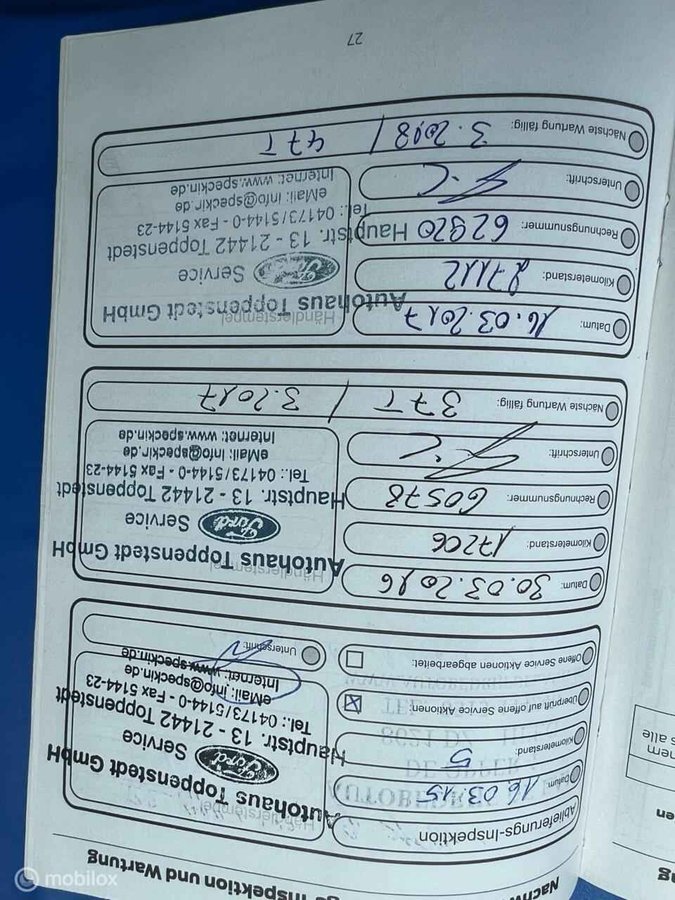 Inspektion und Wartung
Ablieferungs-Inspektion
Datum: 16.03.15
Kilometerstand: 5
Überprüft auf offene Service Aktionen:
Offene Service Aktionen abgearbeitet:
Händlerstempel
Autohaus Toppenstedt GmbH
Ford Service
Hauptstr. 13 - 21442 Toppenstedt
Tel.: 04173/5144-0 - Fax 5144-23
eMail: info@speckin.de
Internet: www.speckin.de
Unterschrift:
Datum: 30.03.2016
Kilometerstand: 17206
Rechnungsnummer: 60578
Unterschrift:
Nächste Wartung fällig: 37T / 3.2017
Händlerstempel
Autohaus Toppenstedt GmbH
Ford Service
Hauptstr. 13 - 21442 Toppenstedt
Tel.: 04173/5144-0 - Fax 5144-23
eMail: info@speckin.de
Internet: www.speckin.de
Datum: 16.03.2017
Kilometerstand: 27112
Rechnungsnummer: 62920
Unterschrift:
Nächste Wartung fällig: 3.2018 / 47T
Händlerstempel
Autohaus Toppenstedt GmbH
Ford Service
Hauptstr. 13 - 21442 Toppenstedt
Tel.: 04173/5144-0 - Fax 5144-23
eMail: info@speckin.de
Internet: www.speckin.de
27
mobilox